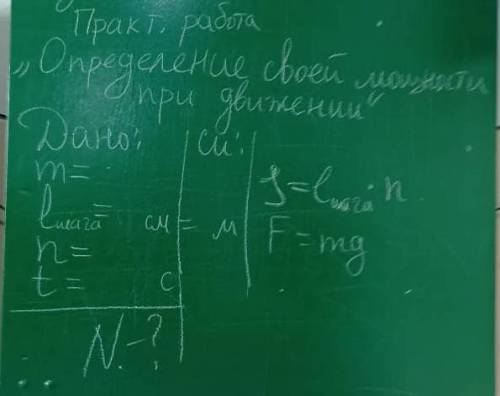 Практ. работа
„Определение своей мощности
при движении“
Дано:
СИ:
m=
lшага= см = м
n=
t= с
N-?
S=lшага·n
F=mg